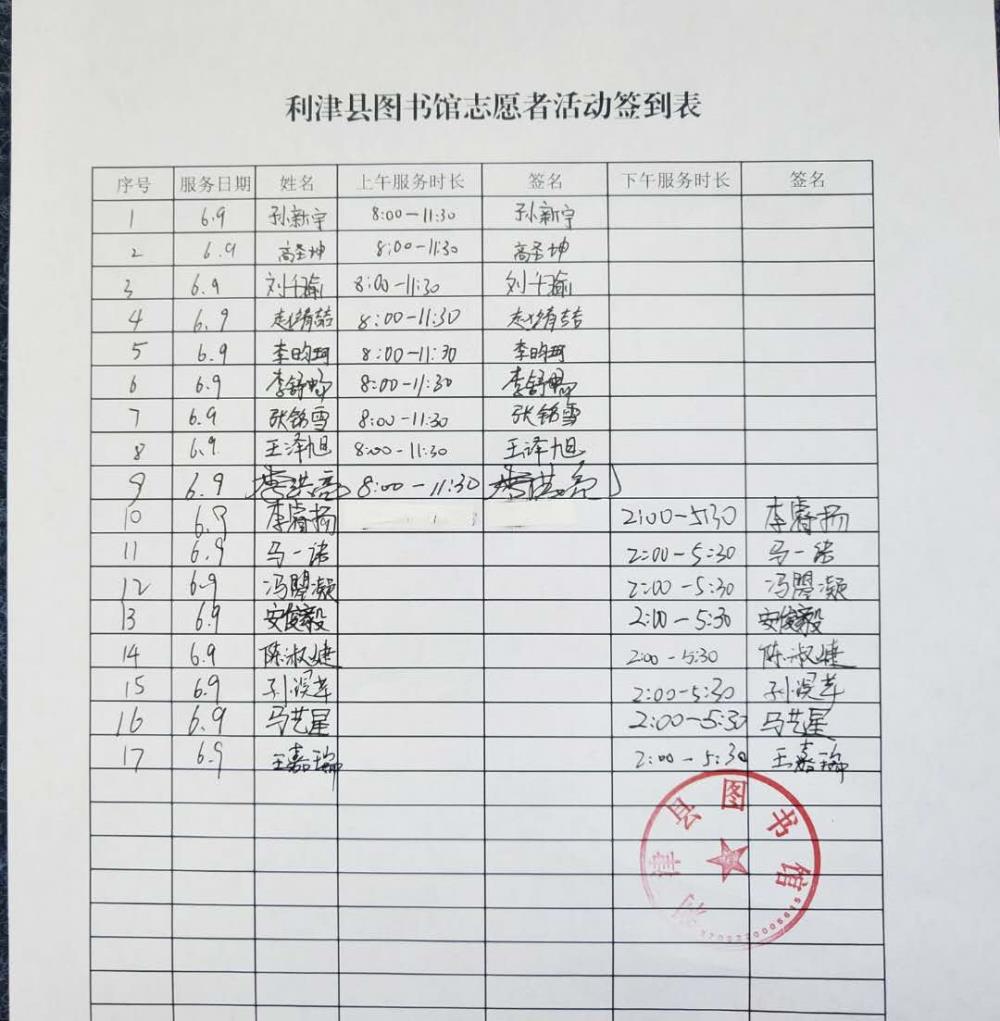 利津县图书馆志愿者活动签到表
序号 服务日期 姓名 上午服务时长 签名 下午服务时长 签名
1 6.9 孙新宇 8:00-11:30 孙新宇
2 6.9 高圣坤 8:00-11:30 高圣坤
3 6.9 刘千瑜 8:00-11:30 刘千瑜
4 6.9 赵绪喆 8:00-11:30 赵绪喆
5 6.9 李昀珂 8:00-11:30 李昀珂
6 6.9 李舒畅 8:00-11:30 李舒畅
7 6.9 张铭雪 8:00-11:30 张铭雪
8 6.9 王泽旭 8:00-11:30 王泽旭
9 6.9 8:00-11:30
10 6.9 李睿扬 2:00-5:30 李睿扬
11 6.9 马一诺 2:00-5:30 马一诺
12 6.9 2:00-5:30
13 6.9 安俊毅 2:00-5:30 安俊毅
14 6.9 陈淑婕 2:00-5:30 陈淑婕
15 6.9 2:00-5:30
16 6.9 马艺星 2:00-5:30 马艺星
17 6.9 王嘉瑞 2:00-5:30 王嘉瑞
利津县图书馆